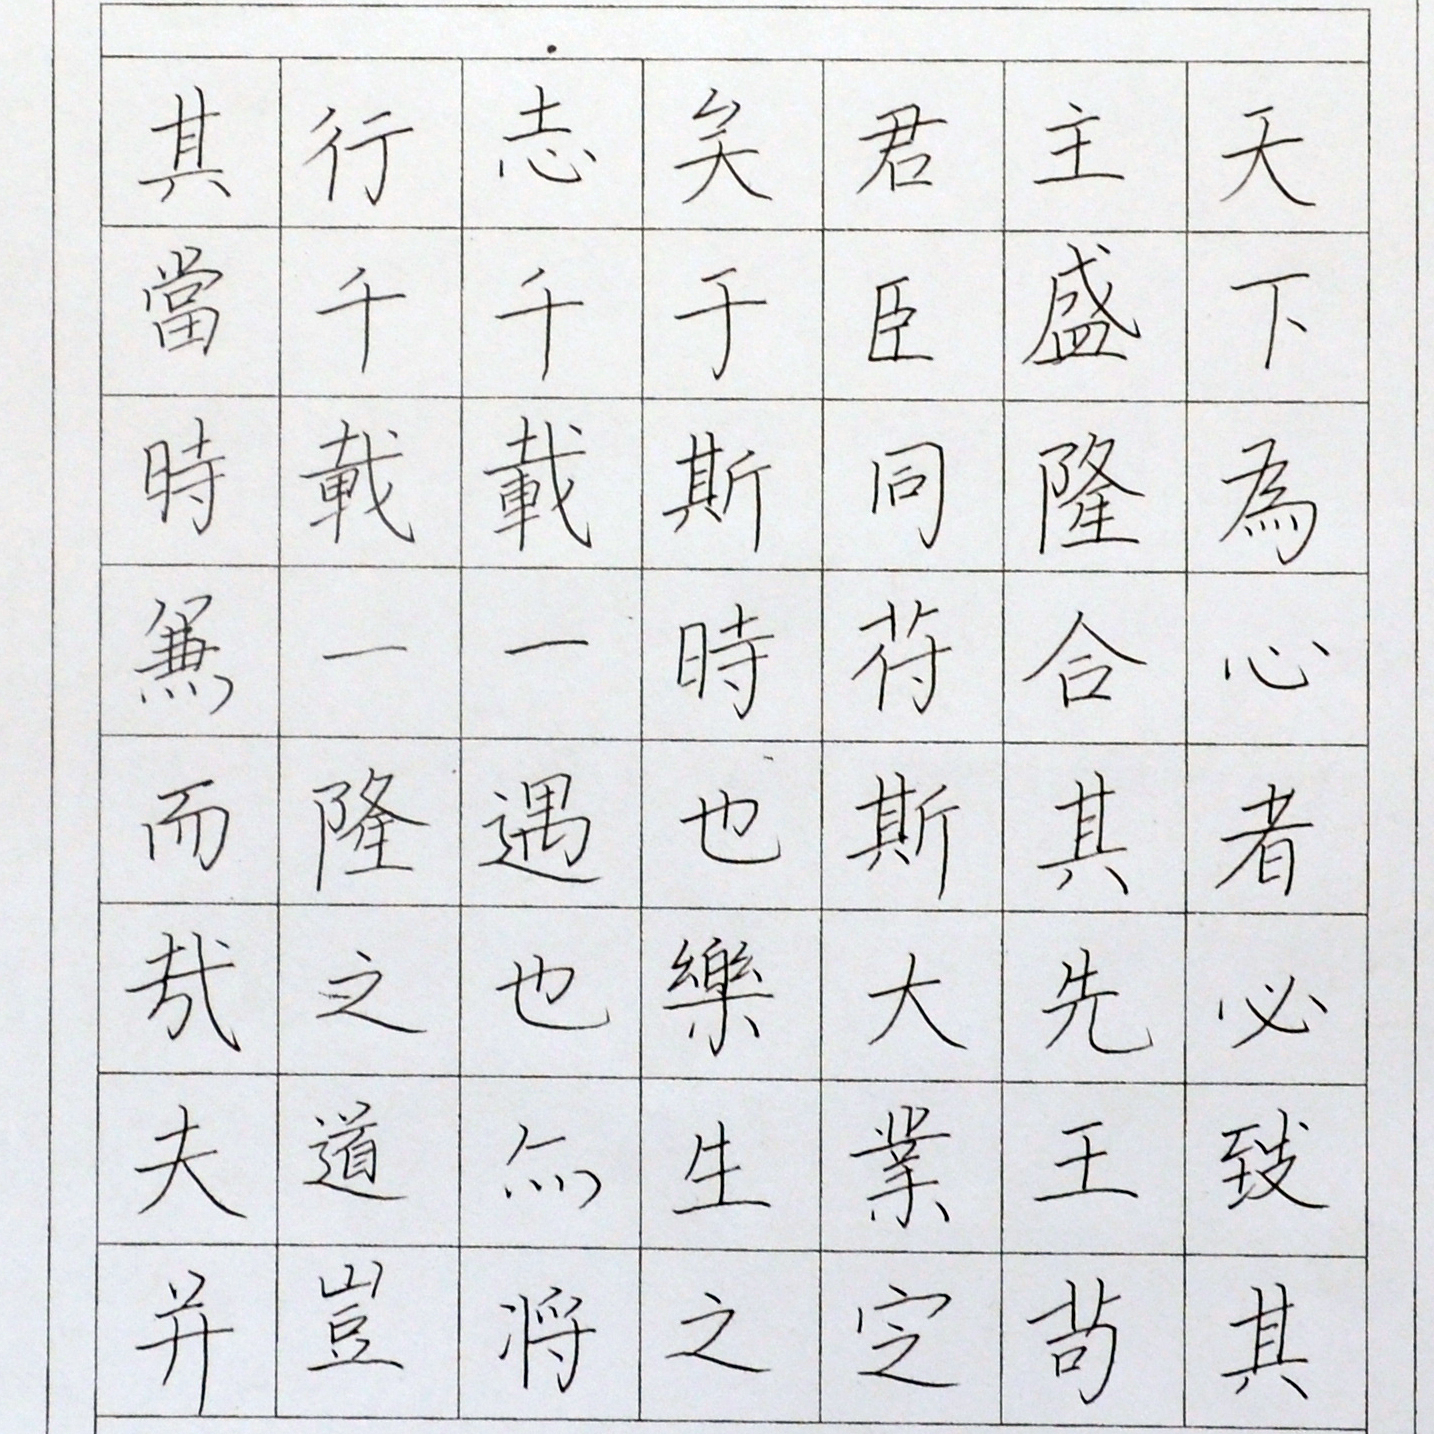 天下為心者必致其
主盛隆合其先王苟
君臣同符斯大業定
矣于斯時也樂生之
志千載一遇也亦將
行千載一隆之道豈
其當時無而哉夫并